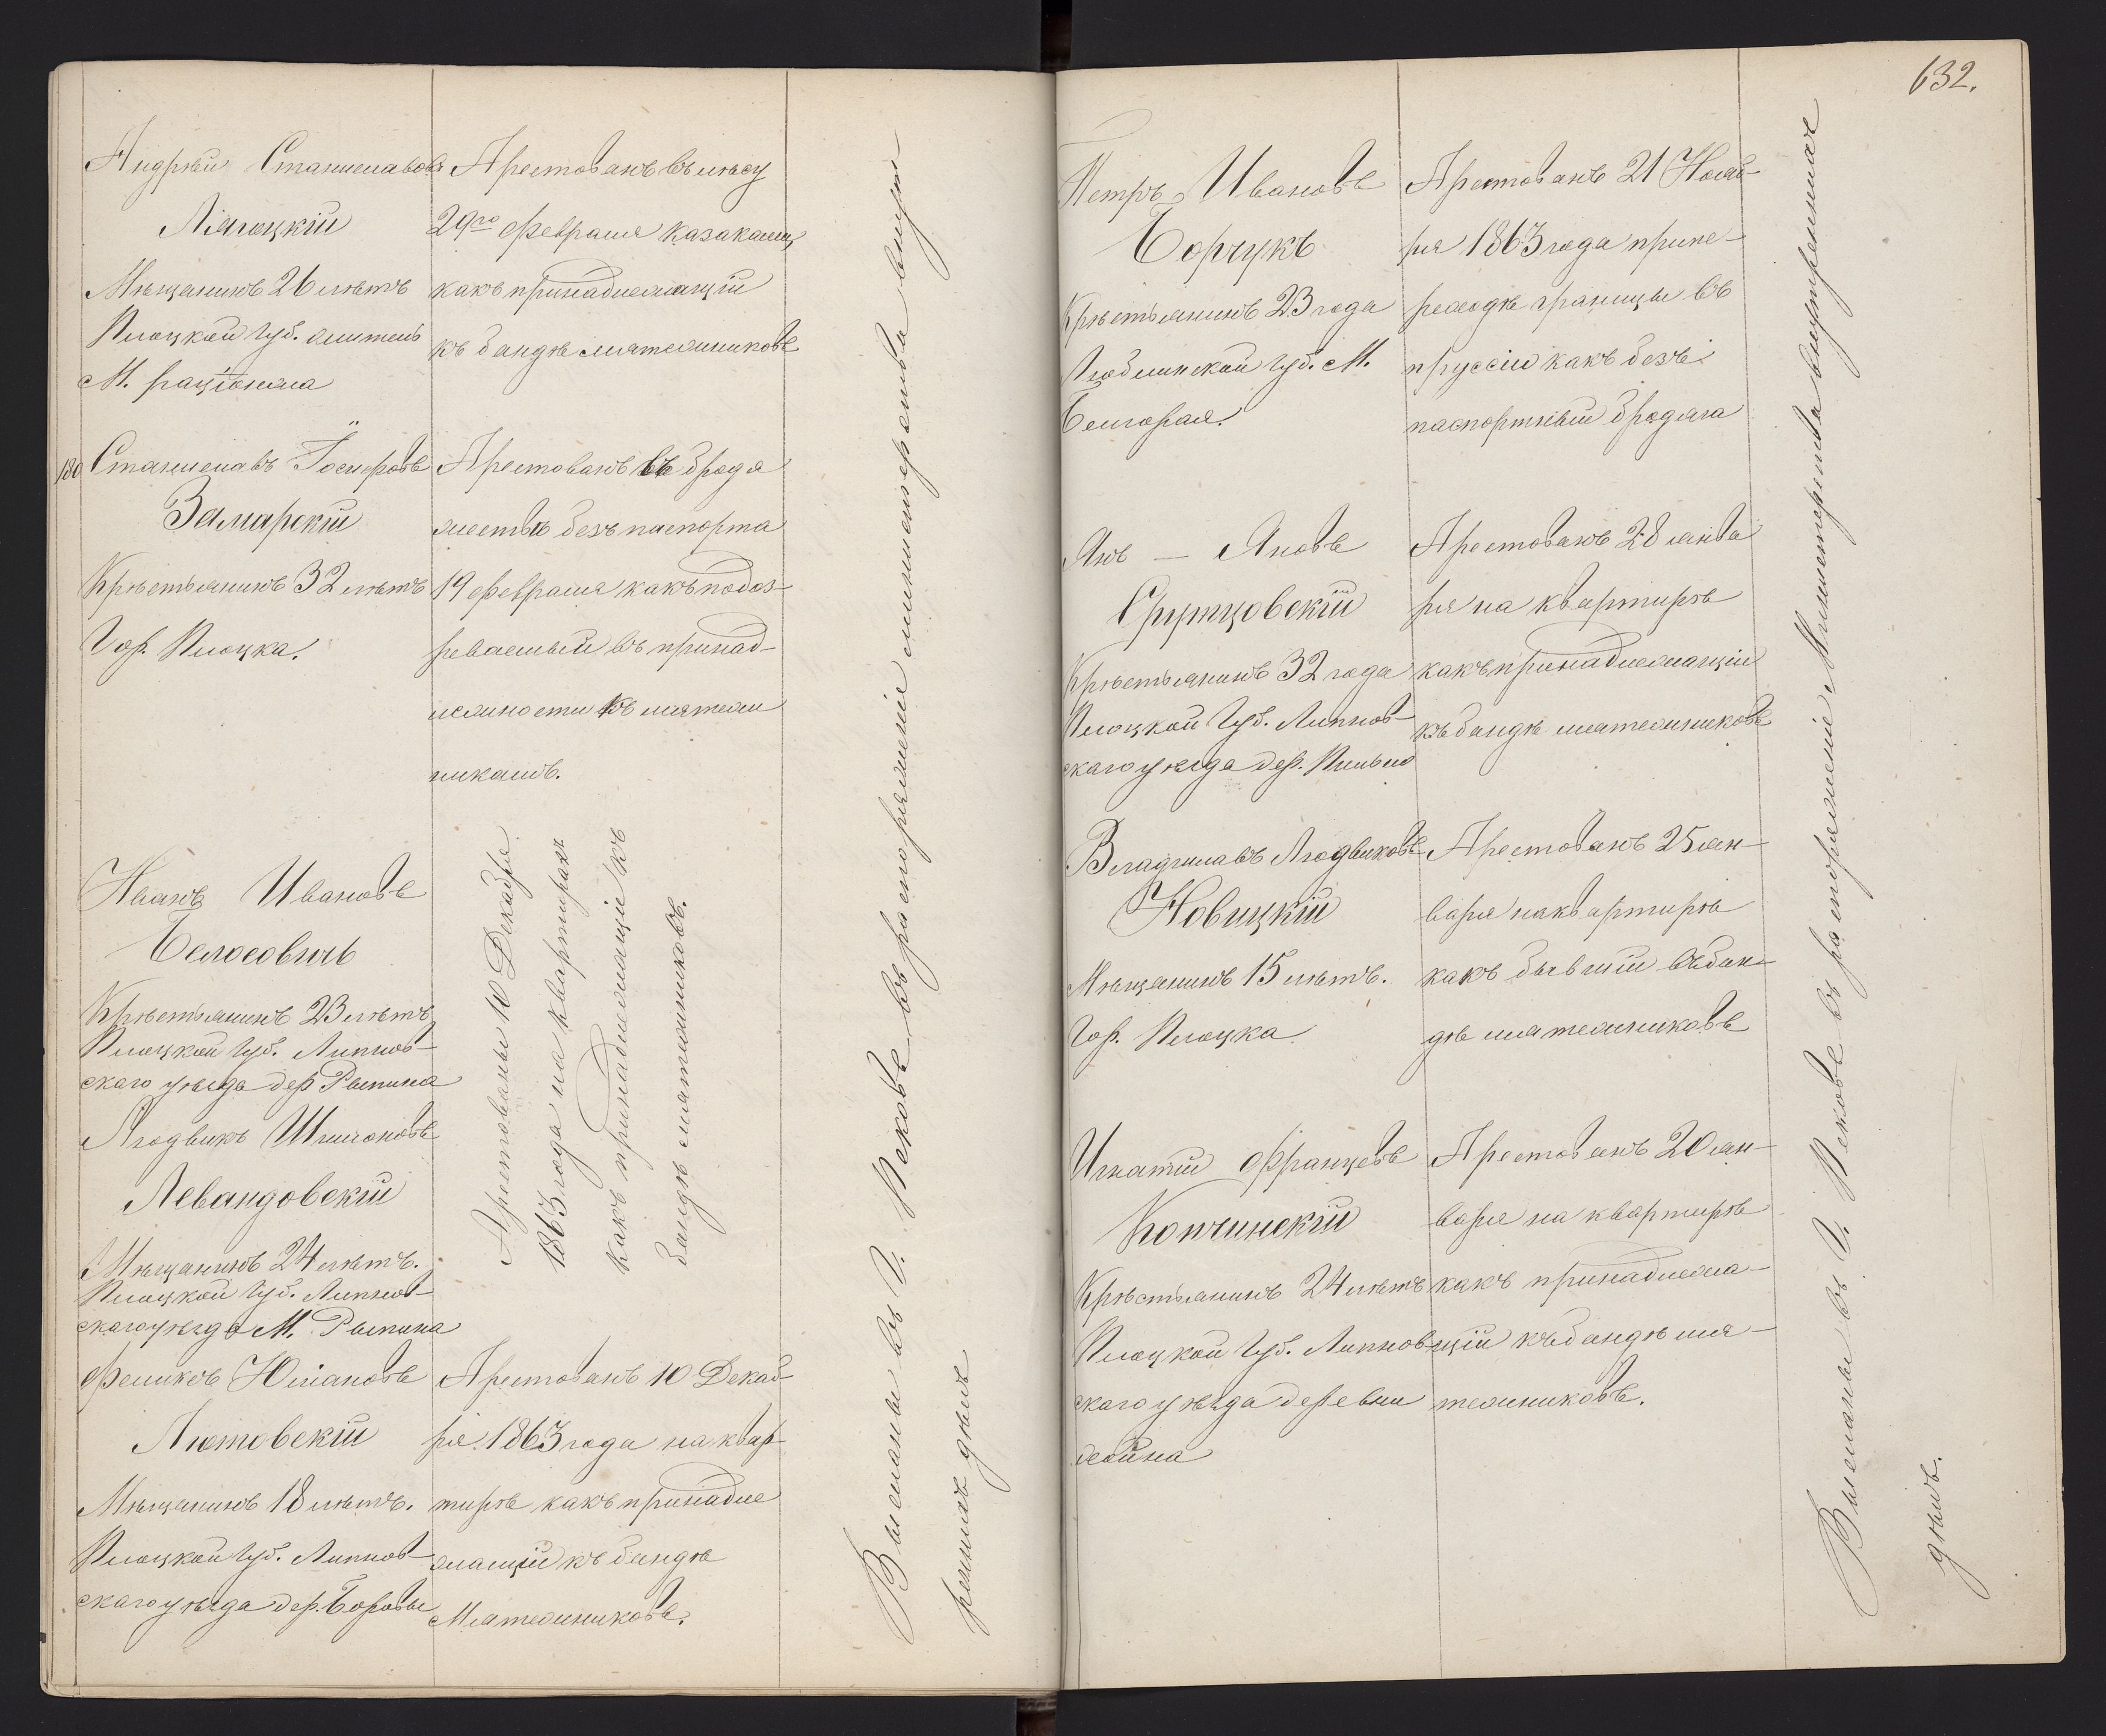 Андрей Станиславовъ
Лягоцкій
Мѣщанинъ 26 лѣтъ
Плоцкой Губ. житель
М. Раціонжа
Арестованъ въ лѣсу
29го февраля казаками,
какъ принадлежащій
къ бандѣ мятежниковъ
180 Станиславъ Іосифовъ
Замарскій
Крѣстьянинъ 32 лѣтъ
Гор. Плоцка.
Арестованъ въ брода
жествѣ безъ паспорта
19 февраля какъ подоз-
реваемый въ принад-
лежности къ мятеж
никамъ.
Иванъ Ивановъ
Белосовичъ
Крѣстьянинъ 23 лѣтъ
Плоцкой Губ. Липнов-
скаго уѣзда дер Рыпина
Людвикъ Шимоновъ
Левандовскій
Мѣщанинъ 24 лѣтъ.
Плоцкой Губ. Липнов-
скаго уѣзда М. Рыпина
Арестованы 10 Декабря
1863 года на квартирахъ
какъ принадлежащіе къ
бандѣ мятежниковъ.
Феликсъ Юліановъ
Лютовскій
Мѣщанинъ 18 лѣтъ.
Плоцкой Губ. Липнов-
скаго уѣзда дер. Боровы
Арестованъ 10 Декаб-
ря 1863 года на квар-
тирѣ какъ принадле
жащій къ бандѣ
Мятежниковъ.
Высланы въ Г. Псковъ въ распоряженіе министерства внут
реннихъ дѣлъ
632.
Петръ Ивановъ
Борчукъ
Крѣстьянинъ 23 года
Люблинской Губ. М.
Белгорая.
Арестованъ 21 Нояб-
ря 1863 года при пе-
реходѣ границы въ
пруссіи какъ безъ
паспортный бродяга
Янъ - Яновъ
Крѣстьянинъ 32 года
Плоцкой Губ. Липнов-
скаго уѣзда дер.
Арестованъ 28 янва
ря на квартирѣ
какъ принадлежащій
къ бандѣ мятежниковъ
Владиславъ Людвиковъ
Новицкій
Мѣщанинъ 15 лѣтъ.
Гор. Плоцка
Арестованъ 25 ян-
варя на квартирѣ
какъ бывшій въ бан-
дѣ мятежниковъ
Игнатій Францовъ
Копчинскій
Крѣстьянинъ 24 лѣтъ
Плоцкой Губ. Липнов-
скаго уѣзда деревни
Арестованъ 20 ян-
варя на квартирѣ
какъ принадлежа-
щій къ бандѣ мя-
тежниковъ.
Высланы въ Г. Псковъ въ распоряженіе Министерства внутреннихъ
дѣлъ.